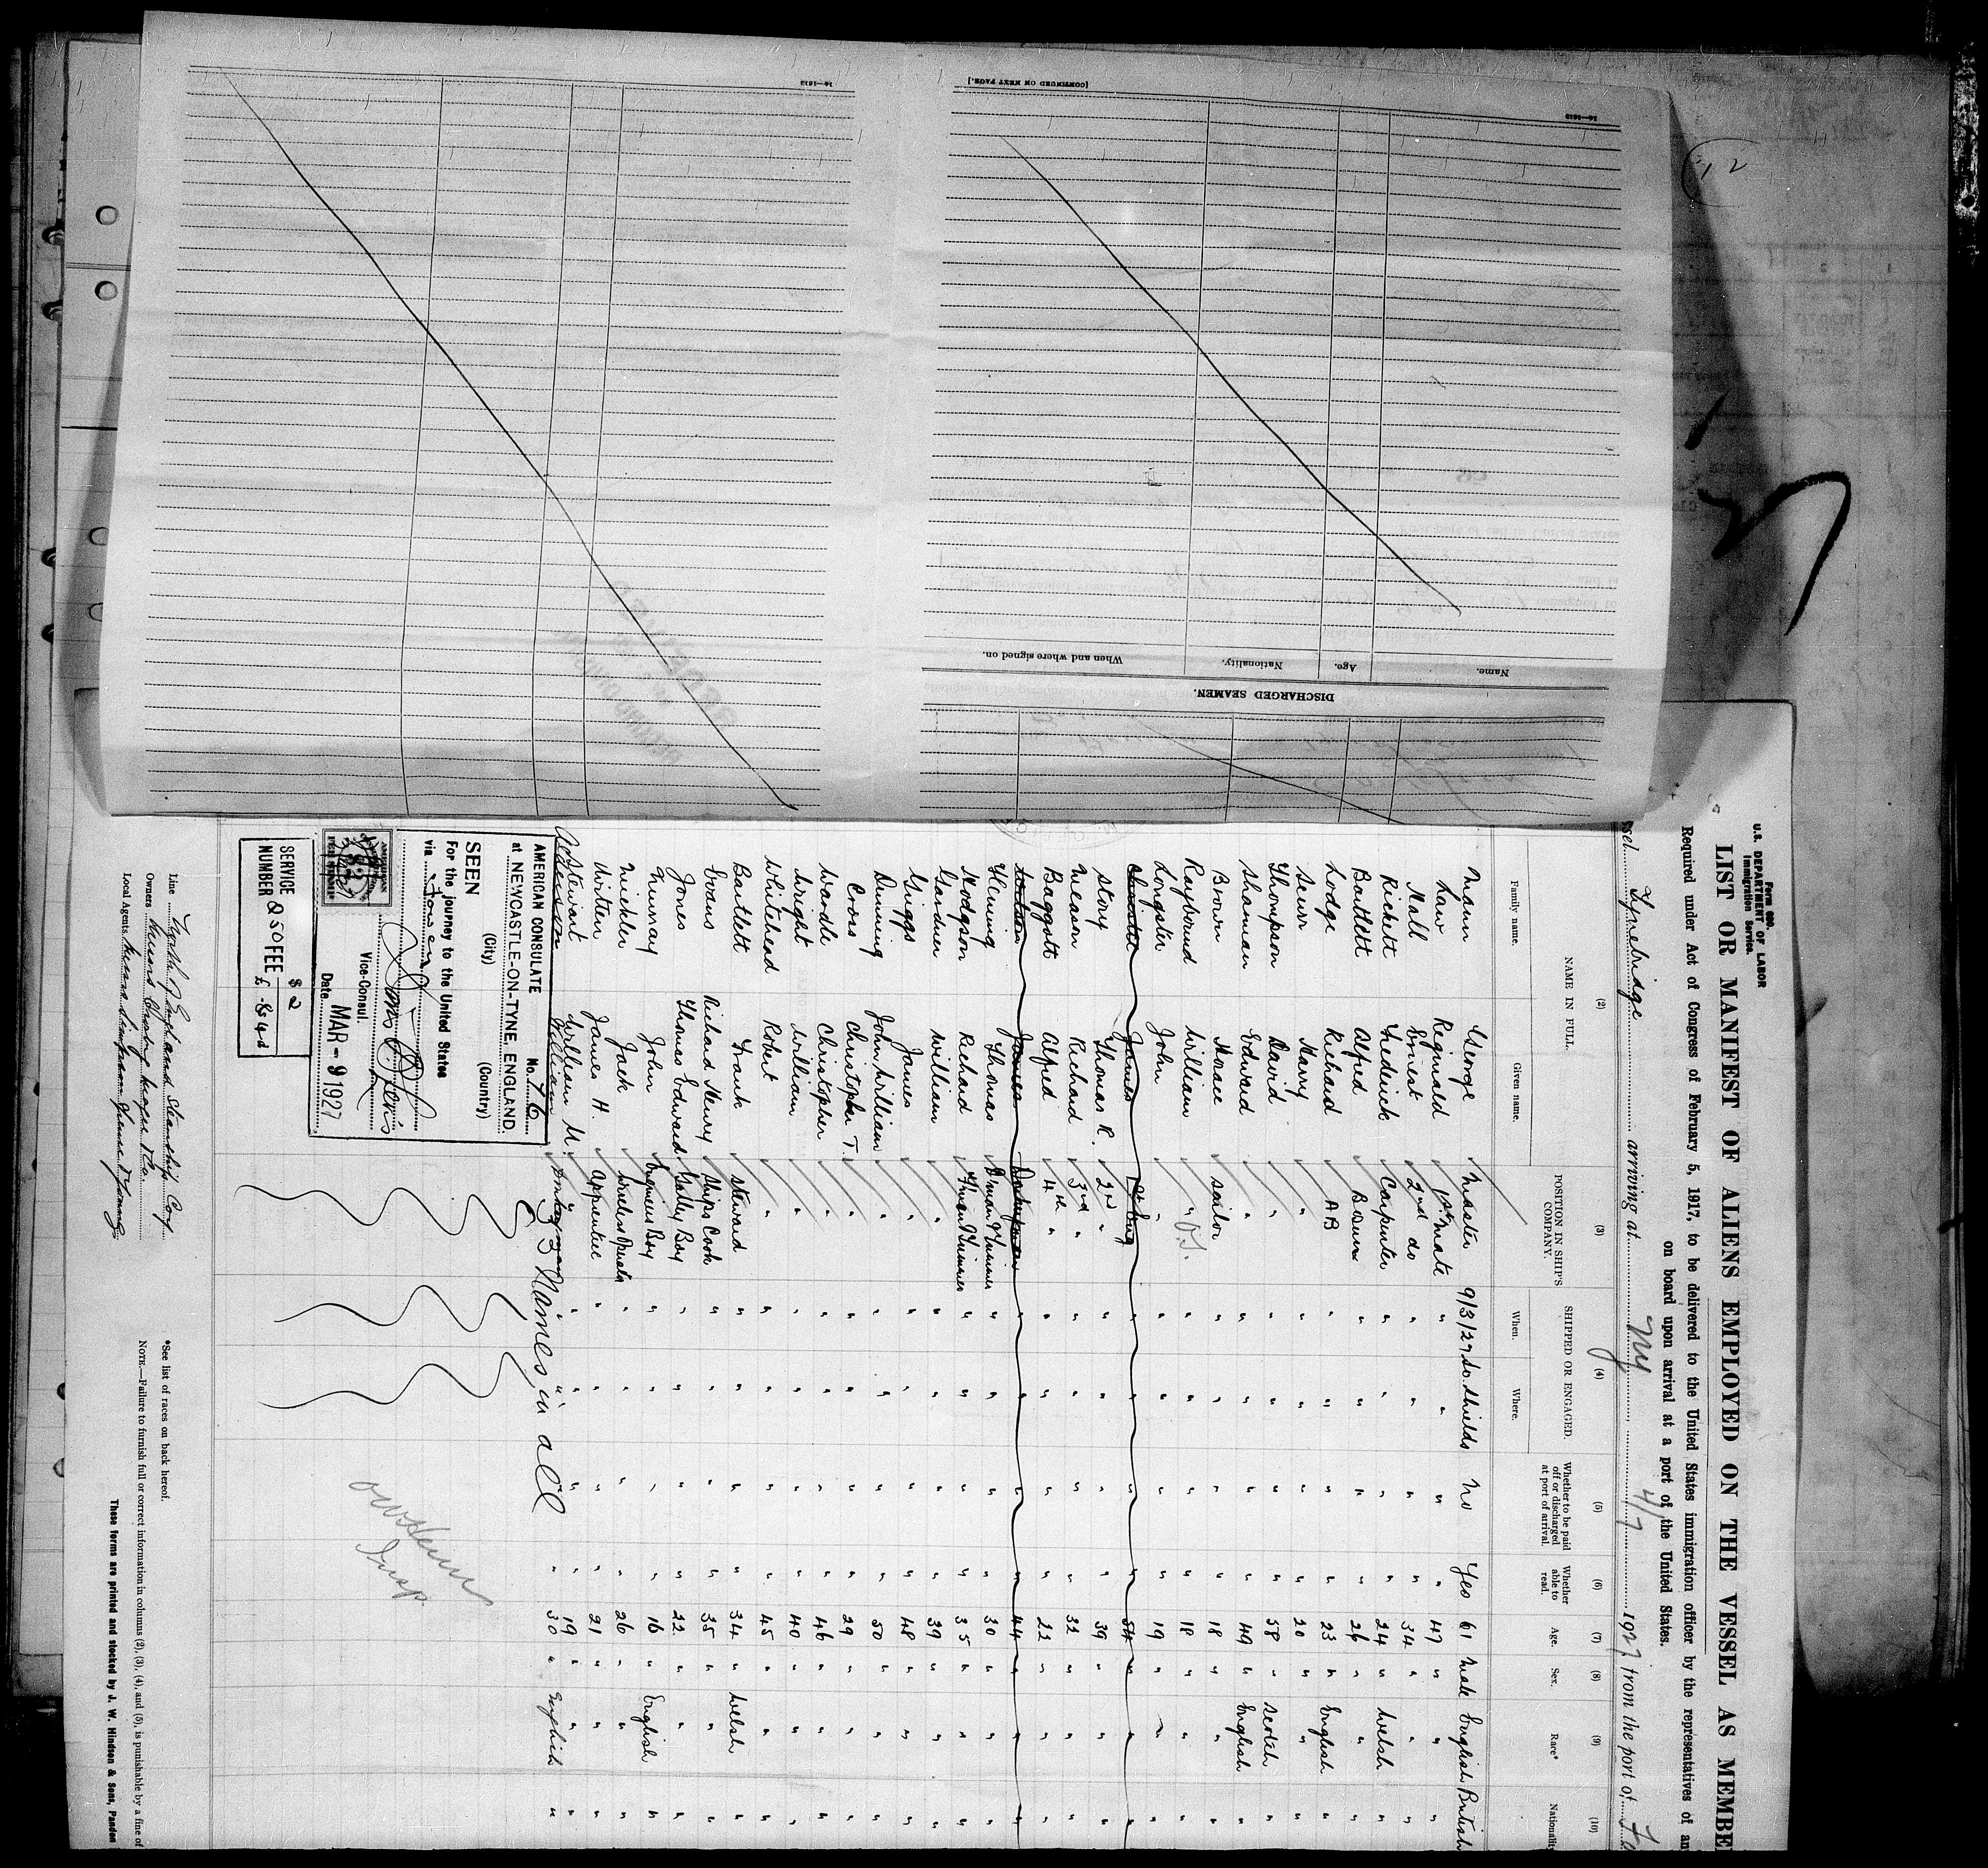 Form 689.
U.S. DEPARTMENT OF LABOR
Immigration Service.
LIST OR MANIFEST OF ALIENS EMPLOYED ON THE VESSEL AS MEMBE
Required under Act of Congress of February 5, 1917, to be delivered to the United States immigration officer by the representatives of an
on board upon arrival at a port of the United States.
ssel Tynebridge arriving at NY 4/7 1927 from the port of
(2) (3) (4) (5) (6) (7) (8) (9) (10)
NAME IN FULL. POSITION IN SHIP'S COMPANY. SHIPPED OR ENGAGED. Whether to be paid off or discharged at port of arrival. Whether able to read. Age. Sex. Race* Nationalit
Family name. Given name. When. Where.
Mann George Master 9/3/27 So. Shields No Yes 61 Male English British
Law Reginald 1st Mate " " " " 47 " " "
Hall Ernest 2nd do " " " " 34 " " "
Rickett Frederick Carpenter " " " " 24 " Welsh "
Bartlett Alfred Bosun " " " " 26 " " "
Lodge Richard AB " " " " 23 " English "
Harry " " " " " 20 " " "
Thompson David " " " " " 58 " Scotch "
Sharman Edward " " " " " 49 " English "
Brown Horace Sailor " " " " 18 " " "
Raybound William " " " " " 18 " " "
Longster John " " " " " 19 " " "
James " " " " 54 " " "
Story Thomas R. 2nd " " " " " 39 " " "
Meason Richard 3rd " " " " " 32 " " "
Baggott Alfred 4th " " " " " 22 " " "
James Donkeyman " " " " 44 " " "
Fleming Thomas F'man & Trimmer " " " " 30 " " "
Hodgson Richard F'man & Trimmer " " " " 35 " " "
Gardner William " " " " " 39 " " "
Griggs James " " " " " 48 " " "
Dunning John William " " " " " 50 " " "
Cross Christopher T. " " " " " 29 " " "
Warde Christopher " " " " " 46 " " "
Wright William " " " " " 40 " " "
Whitehead Robert " " " " " 45 " " "
Bartlett Frank Steward " " " " 34 " Welsh "
Evans Richard Henry Ships Cook " " " " 35 " " "
Jones Thomas Edward Galley Boy " " " " 22 " " "
John Engineers Boy " " " " 16 " English "
Mickler Jack Wireless Operator " " " " 26 " " "
Written James H. Apprentice " " " " 21 " " "
William M. " " " " " 19 " " "
William Donkeyman " " " " 30 " English "
33 Names in all
AMERICAN CONSULATE No. 76
at NEWCASTLE-ON-TYNE, ENGLAND
(City) (Country)
SEEN
For the journey to the United States
via
Vice-Consul.
Date MAR - 9 1927
SERVICE NUMBER 250 FEE $ 2
£ -8s 4d
Insp
Line North of England Steamship Coy
Owners Messrs
Local Agents Messrs Simpson Spence & Young
*See list of races on back hereof.
NOTE.—Failure to furnish full or correct information in columns (2), (3), (4), and (5), is punishable by a fine of
These forms are printed and stocked by J. W. Hindson & Sons, Pandon
DISCHARGED SEAMEN.
Name. Age. Nationality. When and where signed on.
[CONTINUED ON NEXT PAGE.]
14—1613
14—1613